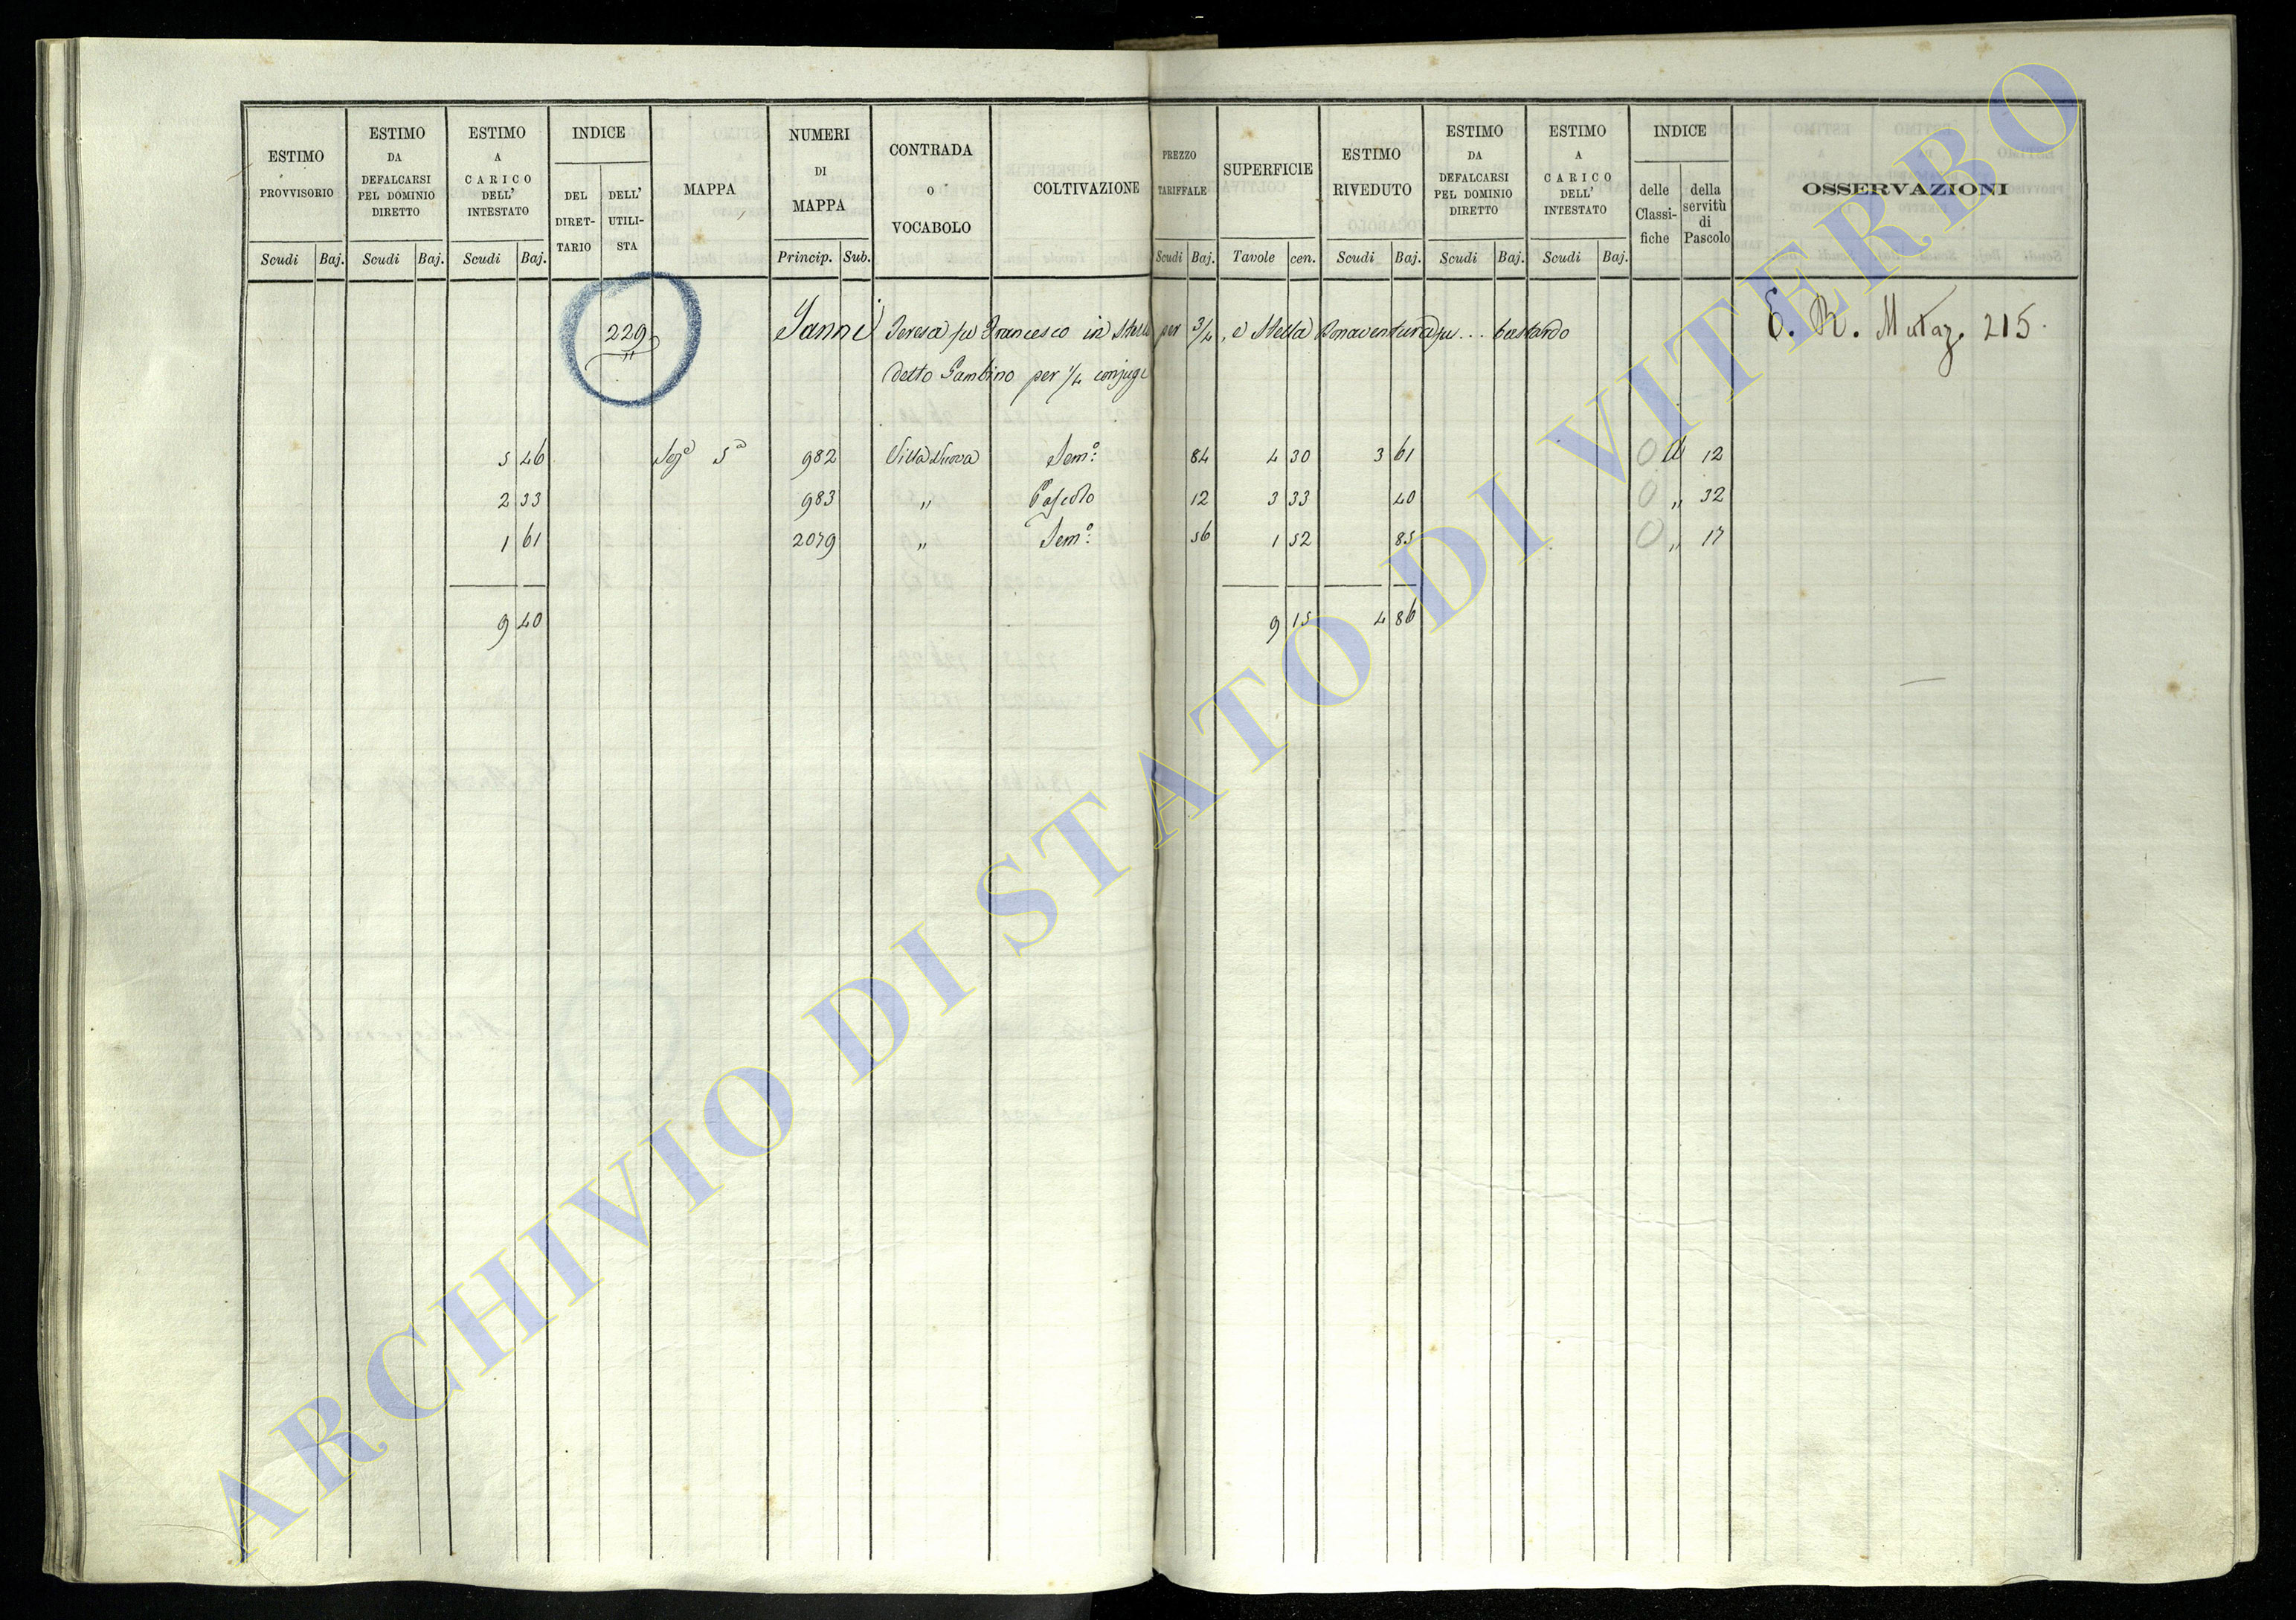 ESTIMO PROVVISORIO | ESTIMO DA DEFALCARSI PEL DOMINIO DIRETTO | ESTIMO A CARICO DELL' INTESTATO | INDICE | MAPPA | NUMERI DI MAPPA | CONTRADA O VOCABOLO | COLTIVAZIONE | PREZZO TARIFFALE | SUPERFICIE | ESTIMO RIVEDUTO | ESTIMO DA DEFALCARSI PEL DOMINIO DIRETTO | ESTIMO A CARICO DELL' INTESTATO | INDICE | OSSERVAZIONI
DEL DIRETTARIO | DELL' UTILISTA | delle Classifiche | della servitù di Pascolo
Scudi | Baj. | Scudi | Baj. | Scudi | Baj. | Princip. | Sub. | Scudi | Baj. | Tavole | cen. | Scudi | Baj. | Scudi | Baj. | Scudi | Baj.
229 Janni Teresa fu Francesco in Stella per 3/4, e Stella Bonaventura fu... bastardo E. R. Mutaz. 215.
detto Gambino per 1/4 conjugi
5 46 Sez.e 5a 982 Villa Nuova Sem.o 84 4 30 3 61 0 12
2 33 983 " Pascolo 12 3 33 40 0 " 32
1 61 2079 " Sem.o 56 1 52 85 0 " 17
9 40 9 15 4 86
ARCHIVIO DI STATO DI VITERBO